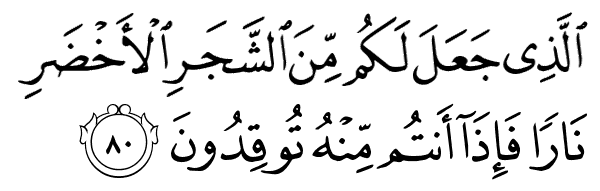 ٱلَّذِى جَعَلَ لَكُم مِّنَ ٱلشَّجَرِ ٱلْأَخْضَرِ
نَارًا فَإِذَآ أَنتُم مِّنْهُ تُوقِدُونَ ٨٠